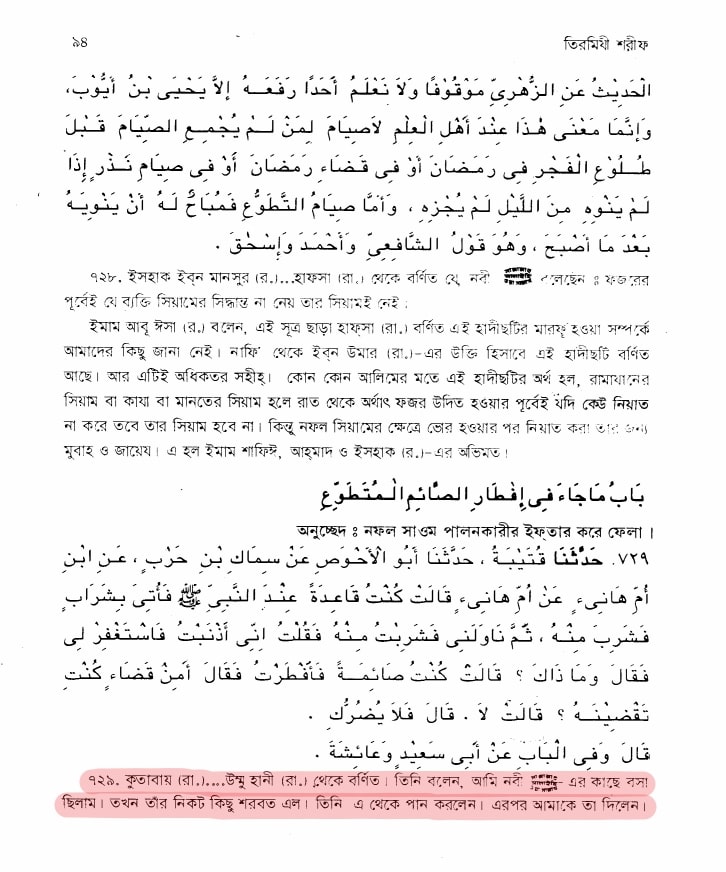 ৯৪ তিরমিযী শরীফ
الْحَدِيْثُ عَنِ الزُّهْرِيِّ مَوْقُوْفًا وَلَا نَعْلَمُ أَحَدًا رَفَعَهُ إِلَّا يَحْيَى بْنُ أَيُّوْبَ،
وَإِنَّمَا مَعْنَى هٰذَا عِنْدَ أَهْلِ الْعِلْمِ لَاصِيَامَ لِمَنْ لَمْ يُجْمِعِ الصِّيَامَ قَبْلَ
طُلُوْعِ الْفَجْرِ فِى رَمَضَانَ أَوْ فِى قَضَاءِ رَمَضَانَ أَوْ فِى صِيَامِ نَذْرٍ إِذَا
لَمْ يَنْوِهِ مِنَ اللَّيْلِ لَمْ يُجْزِهِ ، وَأَمَّا صِيَامُ التَّطَوُّعِ فَمُبَاحٌ لَهُ أَنْ يَنْوِيَهُ
بَعْدَ مَا أَصْبَحَ ، وَهُوَ قَوْلُ الشَّافِعِيِّ وَأَحْمَدَ وَإِسْحٰقَ .
৭২৮. ইসহাক ইব্‌ন মানসুর (র.)...হাফসা (রা.) থেকে বর্ণিত যে, নবী বলেছেন ঃ ফজরের
পূর্বেই যে ব্যক্তি সিয়ামের সিদ্ধান্ত না নেয় তার সিয়ামই নেই।
ইমাম আবূ ঈসা (র.) বলেন, এই সূত্র ছাড়া হাফ্‌সা (রা.) বর্ণিত এই হাদীছটির মারফূ হওয়া সম্পর্কে
আমাদের কিছু জানা নেই। নাফি' থেকে ইব্‌ন উমার (রা.)-এর উক্তি হিসাবে এই হাদীছটি বর্ণিত
আছে। আর এটিই অধিকতর সহীহ্। কোন কোন আলিমের মতে এই হাদীছটির অর্থ হল, রামাযানের
সিয়াম বা কাযা বা মানতের সিয়াম হলে রাত থেকে অর্থাৎ ফজর উদিত হওয়ার পূর্বেই যদি কেউ নিয়্যত
না করে তবে তার সিয়াম হবে না। কিন্তু নফল সিয়ামের ক্ষেত্রে ভোর হওয়ার পর নিয়্যত করা তার জন্য
মুবাহ ও জায়েয। এ হল ইমাম শাফিঈ, আহ্‌মাদ ও ইসহাক (র.)-এর অভিমত।
بَابُ مَاجَاءَ فِى إِفْطَارِ الصَّائِمِ الْمُتَطَوِّعِ
অনুচ্ছেদ ঃ নফল সাওম পালনকারীর ইফ্‌তার করে ফেলা।
৭২৯. حَدَّثَنَا قُتَيْبَةُ ، حَدَّثَنَا أَبُو الْأَحْوَصِ عَنْ سِمَاكِ بْنِ حَرْبٍ ، عَنِ ابْنِ
أُمِّ هَانِيءٍ عَنْ أُمِّ هَانِيءٍ قَالَتْ كُنْتُ قَاعِدَةً عِنْدَ النَّبِيِّ ﷺ فَأُتِىَ بِشَرَابٍ
فَشَرِبَ مِنْهُ ، ثُمَّ نَاوَلَنِى فَشَرِبْتُ مِنْهُ فَقُلْتُ اِنِّى أَذْنَبْتُ فَاسْتَغْفِرْ لِى
فَقَالَ وَمَا ذَاكَ ؟ قَالَتْ كُنْتُ صَائِمَةً فَأَفْطَرْتُ فَقَالَ أَمِنْ قَضَاءٍ كُنْتِ
تَقْضِيْنَهُ ؟ قَالَتْ لَا . قَالَ فَلَا يَضُرُّكِ .
قَالَ وَفِى الْبَابِ عَنْ أَبِى سَعِيْدٍ وَعَائِشَةَ .
৭২৯. কুতাবায় (রা.)....উম্মু হানী (রা.) থেকে বর্ণিত। তিনি বলেন, আমি নবী - এর কাছে বসা
ছিলাম। তখন তাঁর নিকট কিছু শরবত এল। তিনি এ থেকে পান করলেন। এরপর আমাকে তা দিলেন।